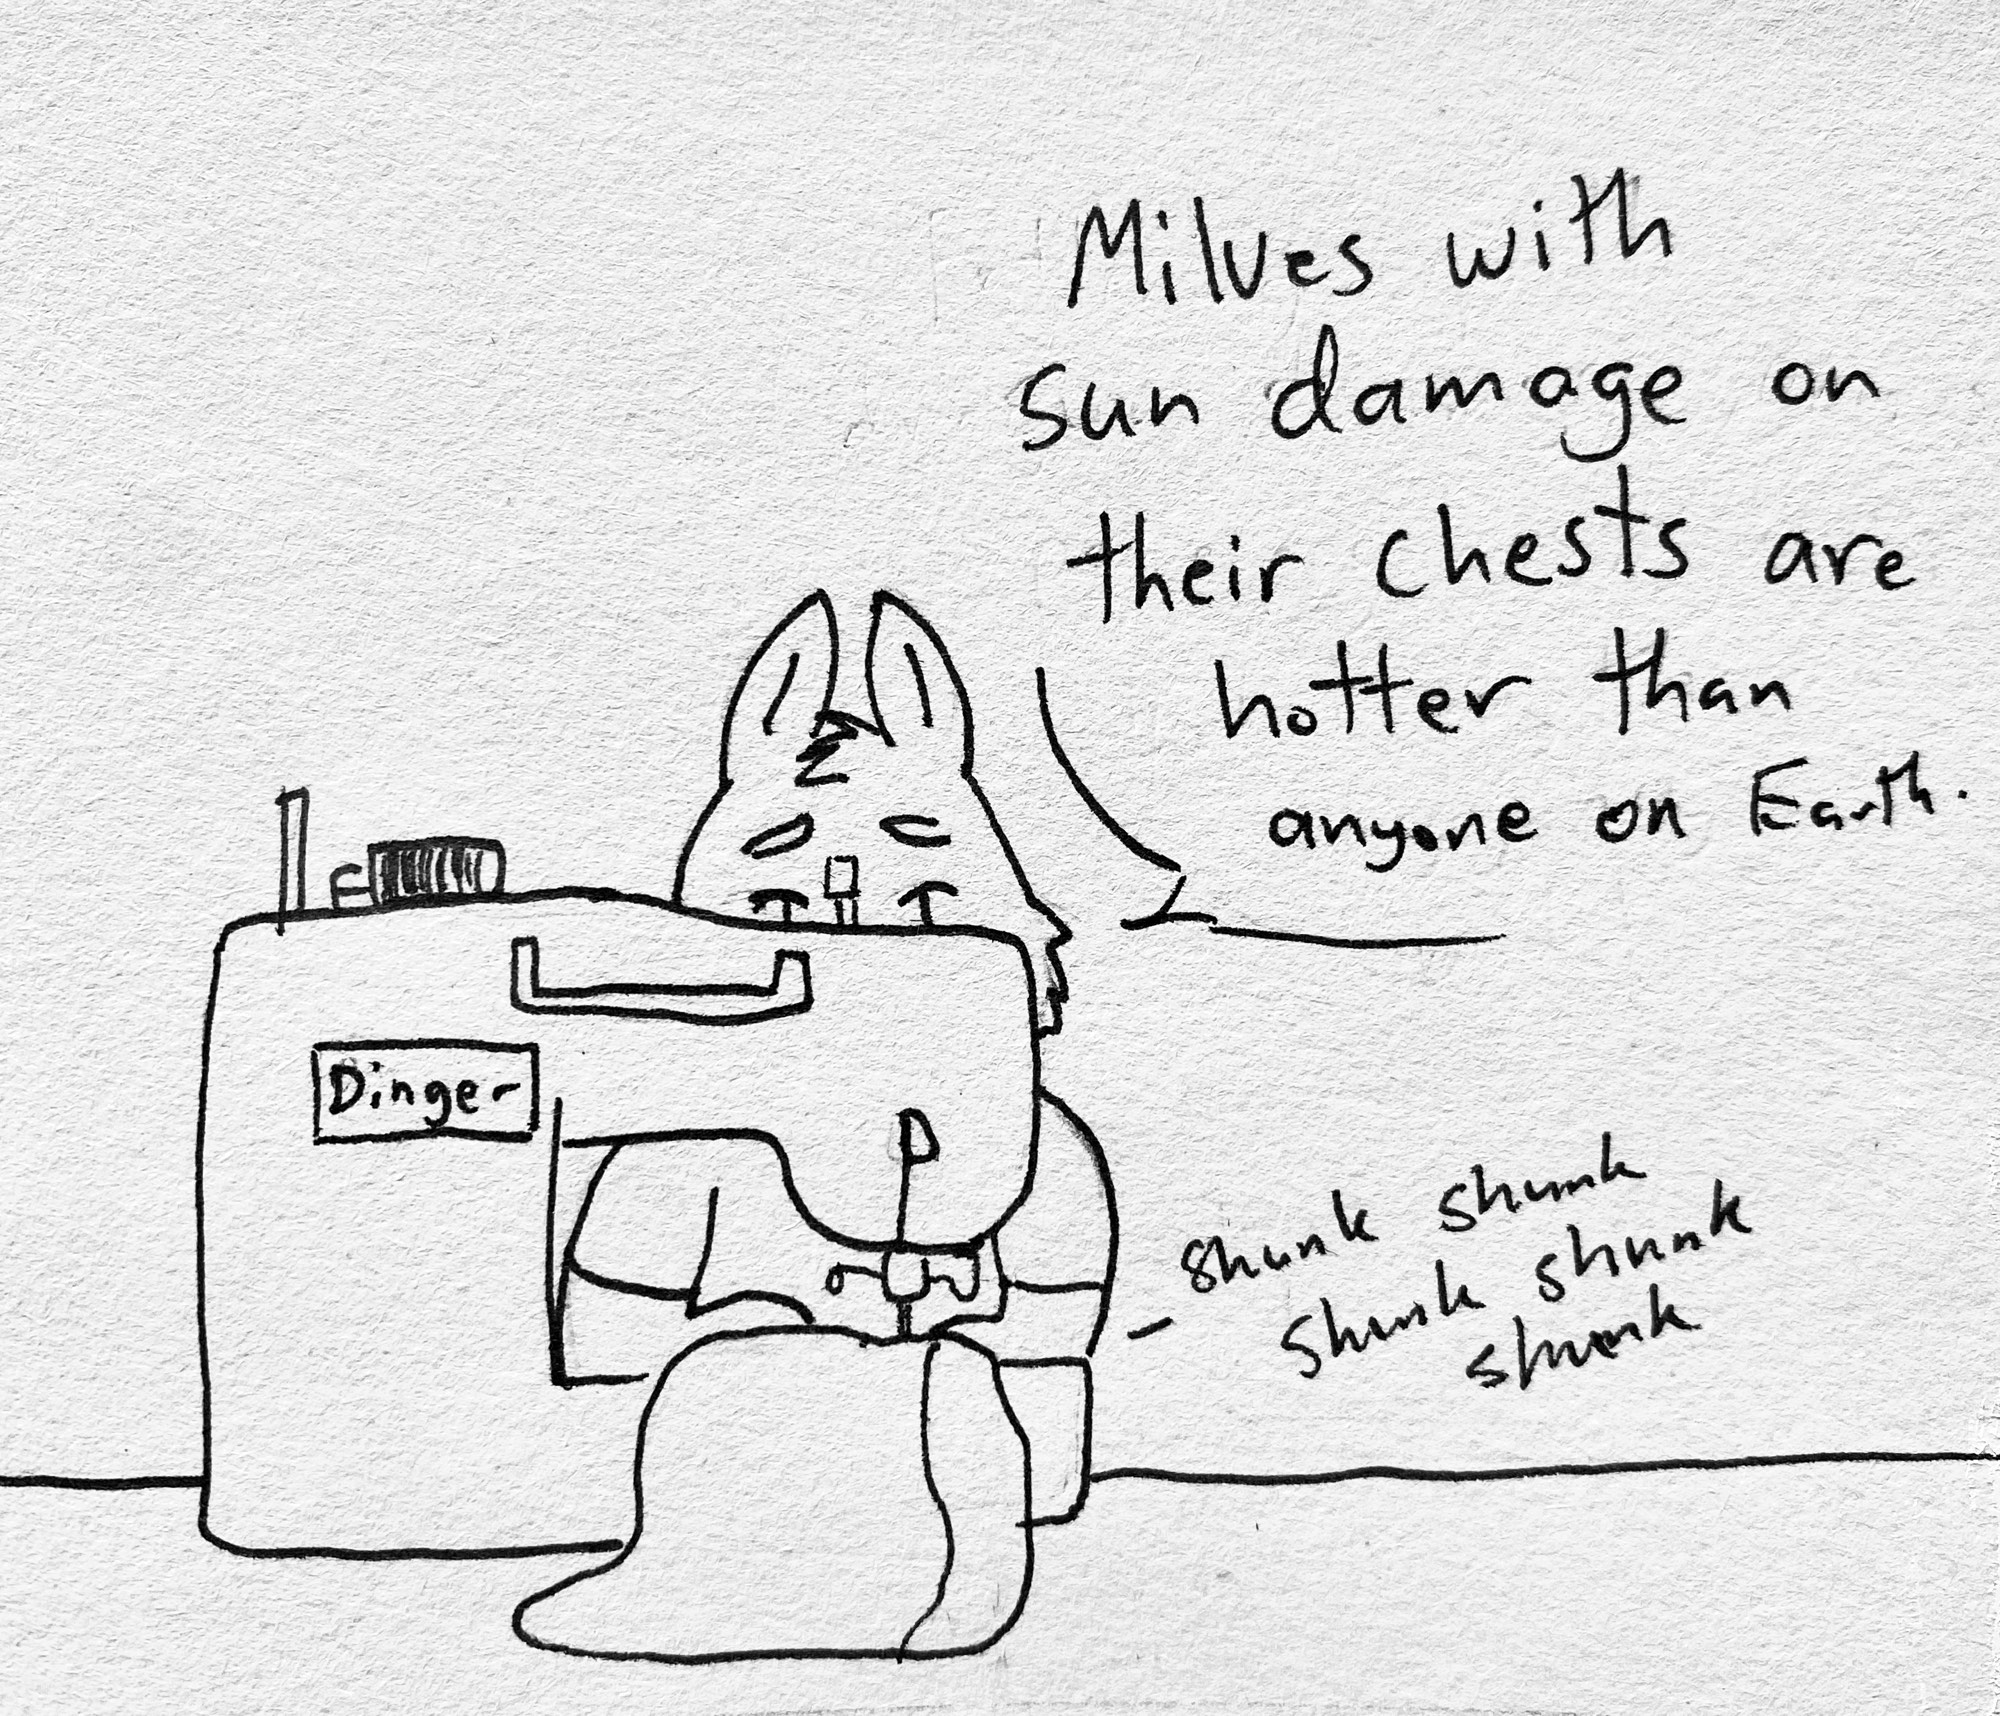 Milves with
sun damage on
their chests are
hotter than
anyone on Earth.
Dinger
shunk shunk
shunk shunk
shunk